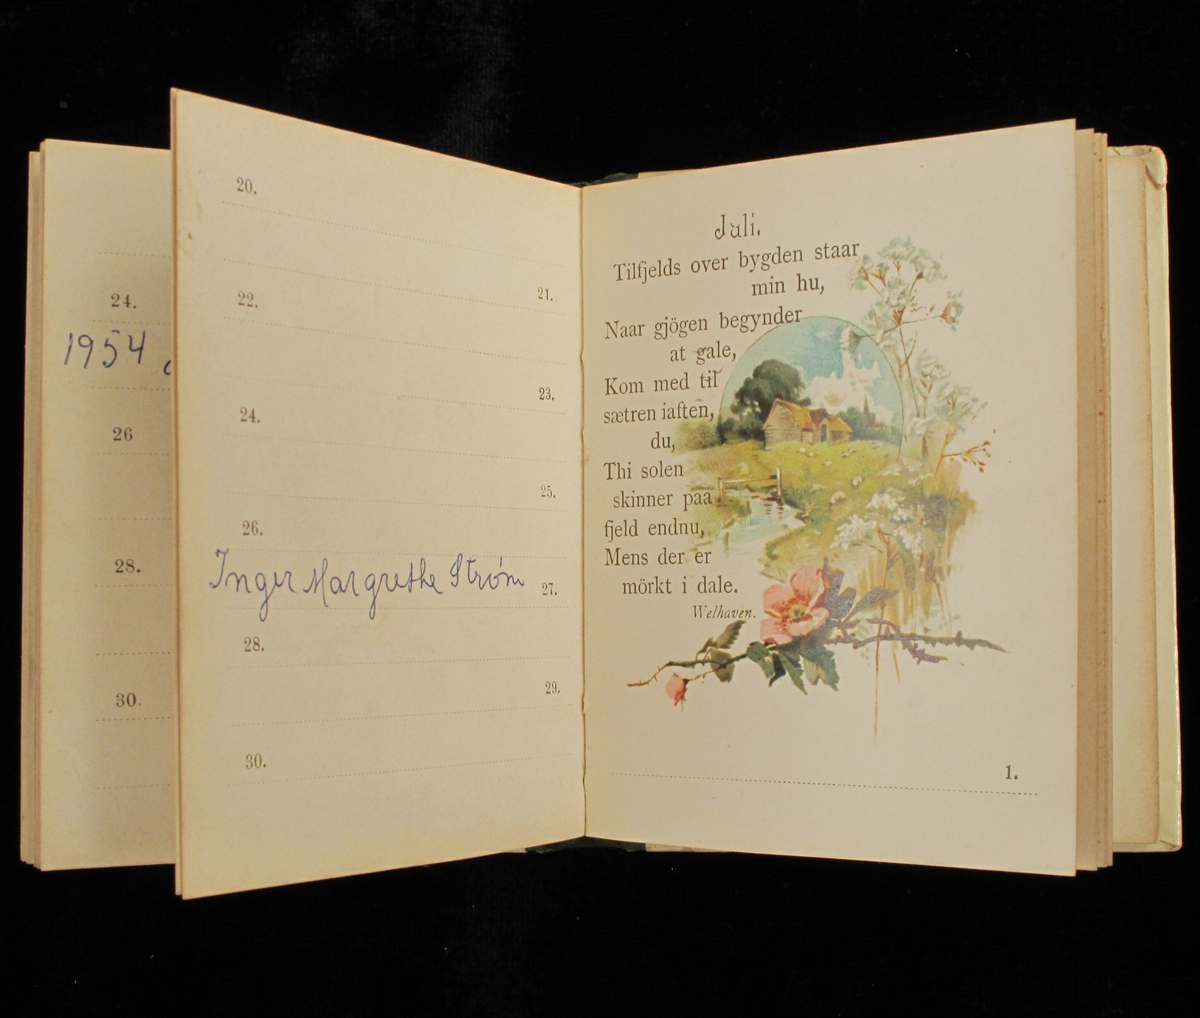 24.
1954
26
28.
30.
20.
21.
22.
23.
24.
25.
26.
Inger Margrethe Strøm 27.
28.
29.
30.
Juli.
Tilfjelds over bygden staar
min hu,
Naar gjögen begynder
at gale,
Kom med til
sætren iaften,
du,
Thi solen
skinner paa
fjeld endnu,
Mens der er
mörkt i dale.
Welhaven.
1.